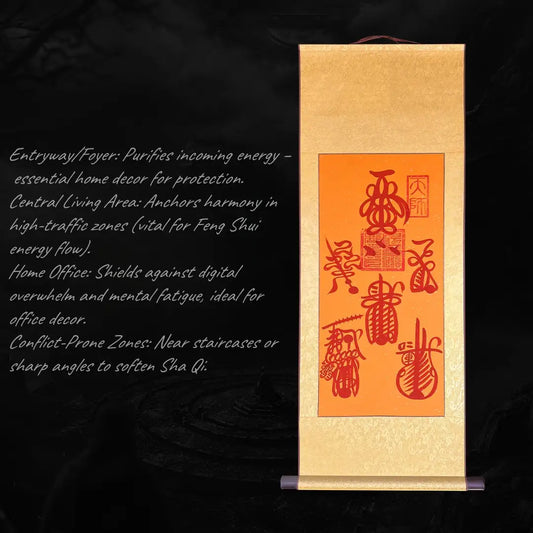 Entryway/Foyer: Purifies incoming energy –
essential home decor for protection.
Central Living Area: Anchors harmony in
high-traffic zones (vital for Feng Shui
energy flow).
Home Office: Shields against digital
overwhelm and mental fatigue, ideal for
office decor.
Conflict-Prone Zones: Near staircases or
sharp angles to soften Sha Qi.